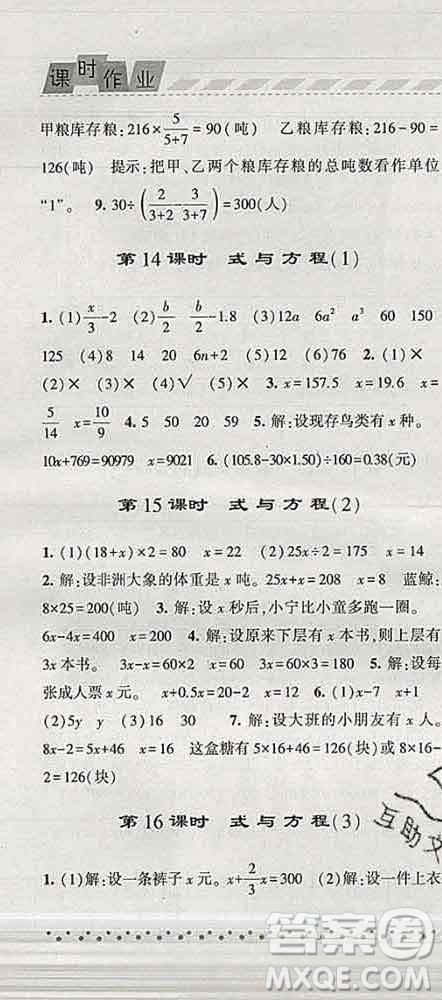 课时作业
甲粮库存粮:216×5/(5+7)=90(吨) 乙粮库存粮:216-90=
126(吨) 提示:把甲、乙两个粮库存粮的总吨数看作单位
“1”。 9. 30÷(2/(3+2)-3/(3+7))=300(人)
第 14 课时 式与方程(1)
1. (1)x/3-2 (2)b/2 b/2-1.8 (3)12a 6a² a³ 60 150
125 (4)8 14 20 6n+2 (5)12 (6)76 2. (1)×
(2)× (3)× (4)√ (5)× 3. x=157.5 x=19.6 x=
5/14 x=10/9 4. 5 50 20 59 5. 解:设现存鸟类有 x 种。
10x+769=90979 x=9021 6. (105.8-30×1.50)÷160=0.38(元)
第 15 课时 式与方程(2)
1. (1)(18+x)×2=80 x=22 (2)25x÷2=175 x=14
2. 解:设非洲大象的体重是 x 吨。25x+x=208 x=8 蓝鲸:
8×25=200(吨) 3. 解:设 x 秒后,小宁比小童多跑一圈。
6x-4x=400 x=200 4. 解:设原来下层有 x 本书,则上层有
3x 本书。 3x-60=x+60 x=60 3x=3×60=180 5. 解:设每
张成人票 x 元。 x+0.5x=20-2 x=12 6. (1)x-7 x+1
(2)5y y (3)16 30 7. 解:设大班的小朋友有 x 人。
8x-2=5x+46 x=16 这盒糖有 5×16+46=126(块)或 8×16-
2=126(块)
第 16 课时 式与方程(3)
1. (1)解:设一条裤子 x 元。x+2/3x=300 (2)解:设一件上衣
互助文
答案圈
MXQE.COM